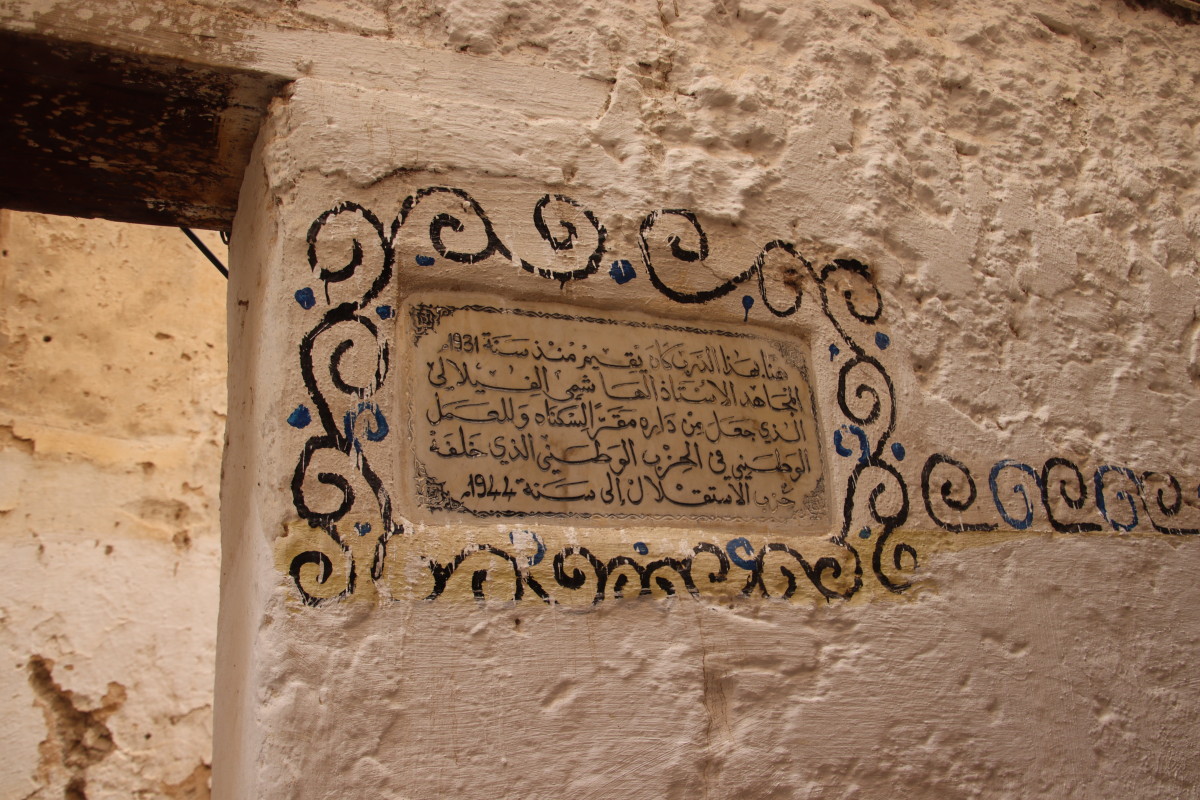 هنا بهذا الدرب كان يقيم منذ سنة 1931
المجاهد الاستاذ الهاشمي الفيلالي
الذي جعل من داره مقرًّا لسكناه وللعمل
الوطني في الحزب الوطني الذي خلفه
حزب الاستقلال إلى سنة 1944